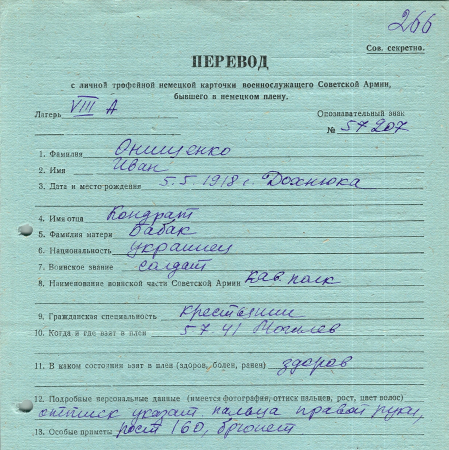 266
Сов. секретно.
ПЕРЕВОД
с личной трофейной немецкой карточки военнослужащего Советской Армии,
бывшего в немецком плену.
Лагерь VIII А
Опознавательный знак
№ 57207
1. Фамилия Онищенко
2. Имя Иван
3. Дата и место рождения 5.5.1918 г.
4. Имя отца Кондрат
5. Фамилия матери Бабак
6. Национальность украинец
7. Воинское звание солдат
8. Наименование воинской части Советской Армии кав. полк
9. Гражданская специальность крестьянин
10. Когда и где взят в плен 5 7. 41 Могилев
11. В каком состоянии взят в плен (здоров, болен, ранен) здоров
12. Подробные персональные данные (имеется фотография, оттиск пальцев, рост, цвет волос)
оттиск указат пальца правой руки,
13. Особые приметы рост 160, брюнет